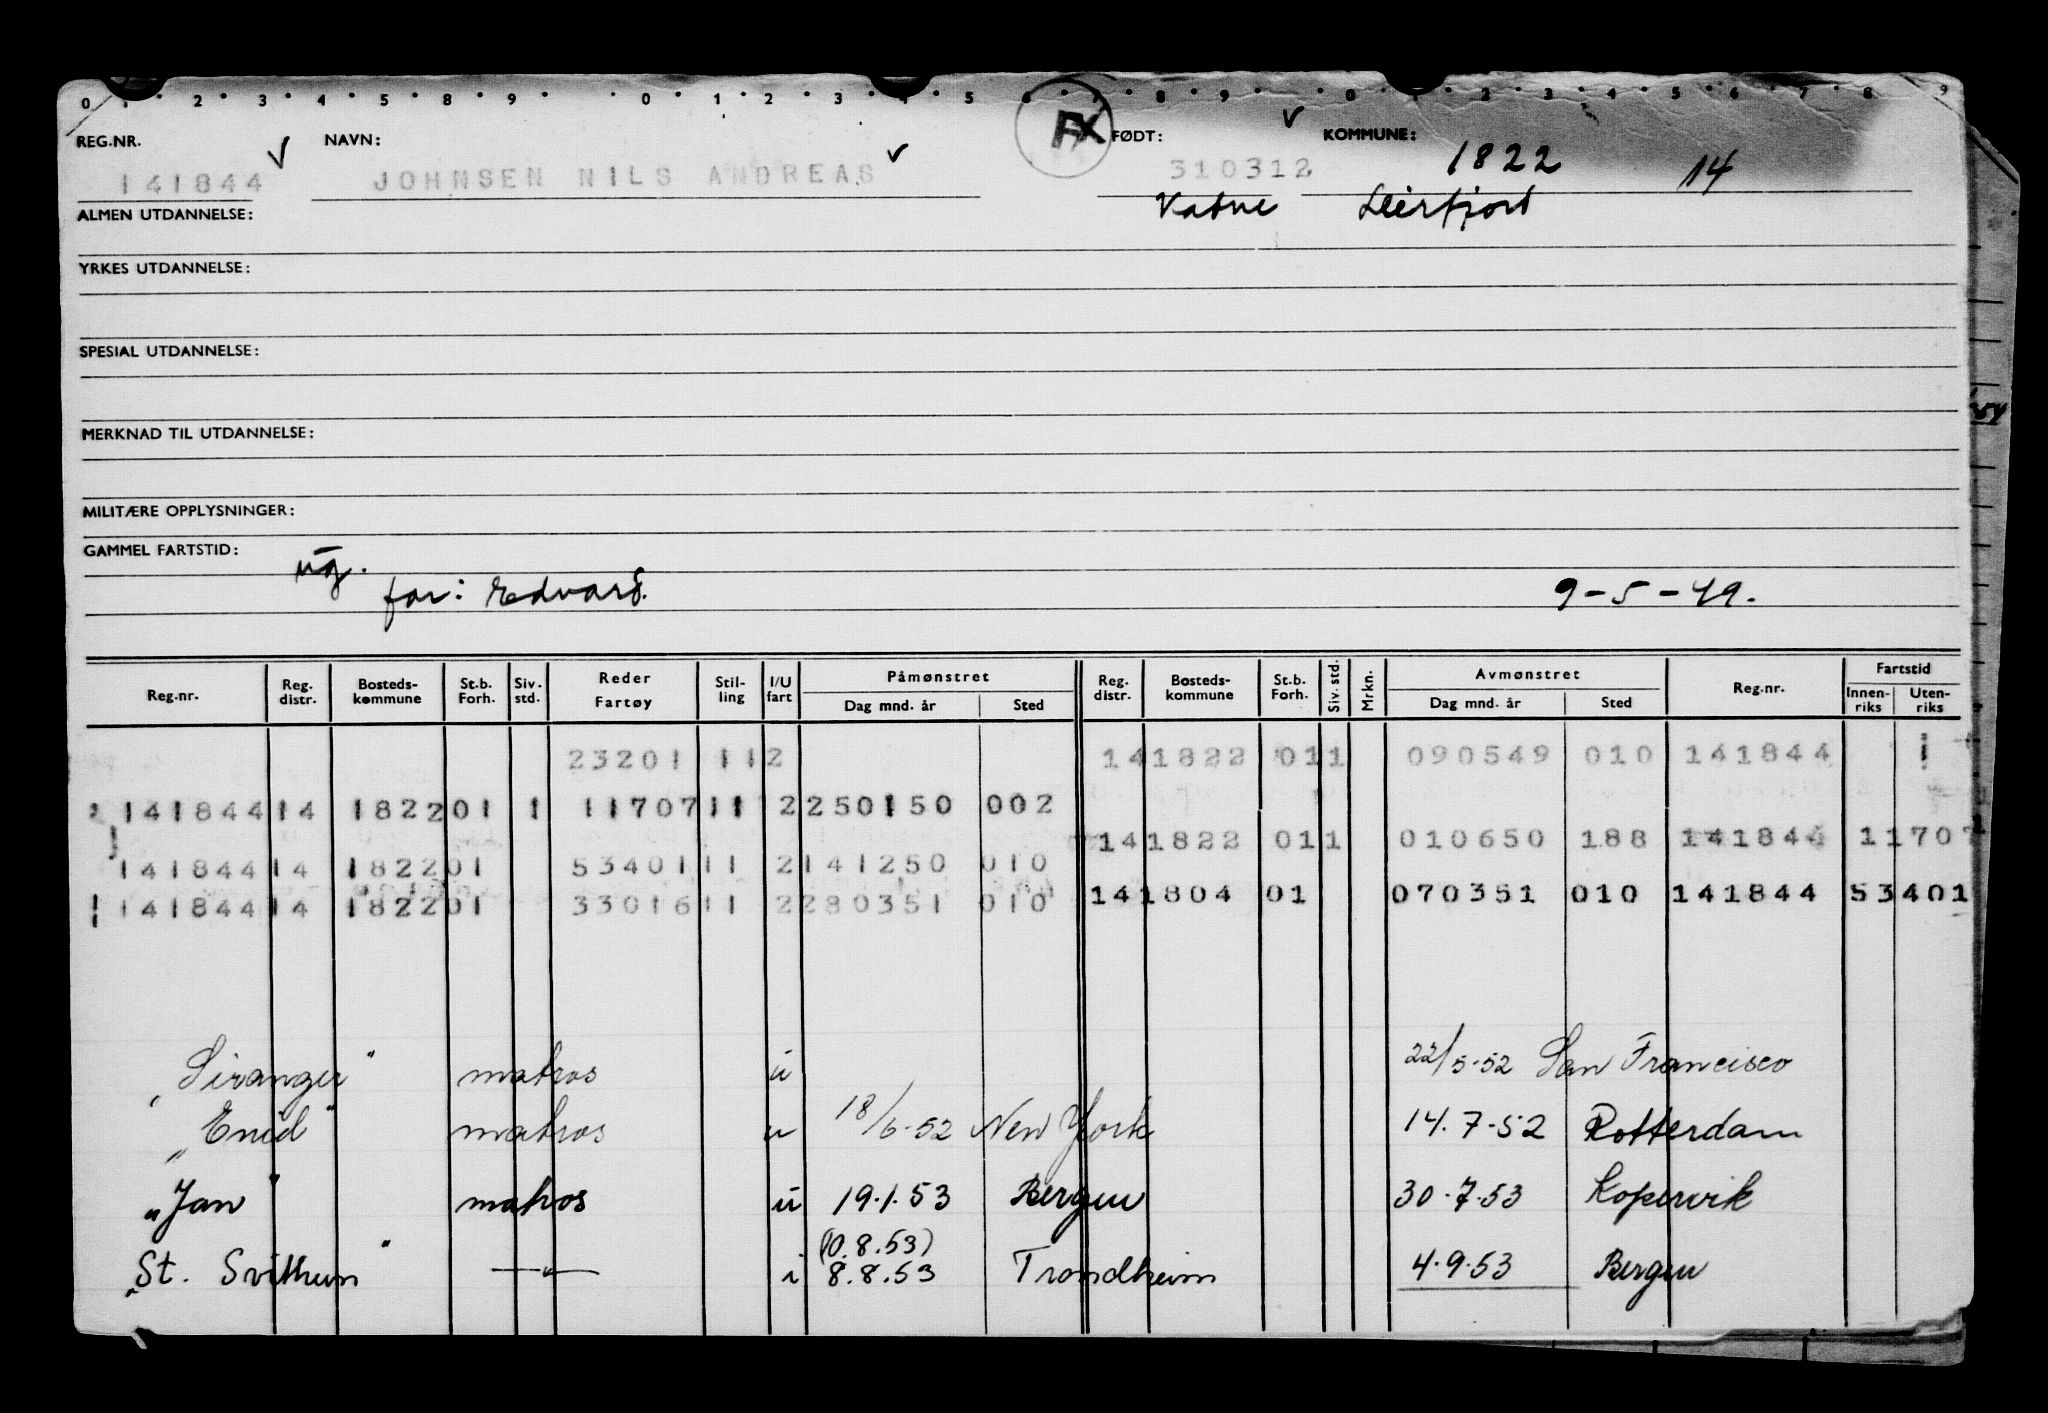 0 1 2 3 4 5 8 9 0 1 2 3 4 5 6 7 8 9 0 1 2 3 4 5 6 7 8 9
REG.NR. NAVN: FX FØDT: KOMMUNE:
141844 JOHNSEN NILS ANDREAS 310312 1822 14
ALMEN UTDANNELSE: Vatne Leirfjord
YRKES UTDANNELSE:
SPESIAL UTDANNELSE:
MERKNAD TIL UTDANNELSE:
MILITÆRE OPPLYSNINGER:
GAMMEL FARTSTID: ug.
far: Edvard. 9-5-49.
Reg.nr. Reg. distr. Bosteds-kommune St.b. Forh. Siv. std. Reder Fartøy Stil-ling I/U fart Påmønstret Dag mnd. år Sted Reg. distr. Bosteds-kommune St.b. Forh. Siv. std. Mrkn. Avmønstret Dag mnd. år Sted Reg.nr. Fartstid Innen-riks Uten-riks
23201 11 2 14 1822 01 1 090549 010 141844 1
141844 14 1822 01 1 11707 11 2 250150 002
14 1822 01 1 010650 188 141844 11707
141844 14 1822 01 53401 11 2 141250 010
14 1804 01 070351 010 141844 53401
141844 14 1822 01 33016 11 2 280351 010
"Siranger" matros u 22/5-52 San Francisco
"Enid" matros u 18/6-52 New York 14.7-52 Rotterdam
"Jan" matros u 19.1.53 Bergen 30.7.53 Kopervik
(10.8.53)
"St. Svithun" —"— i 8.8.53 Trondheim 4.9.53 Bergen